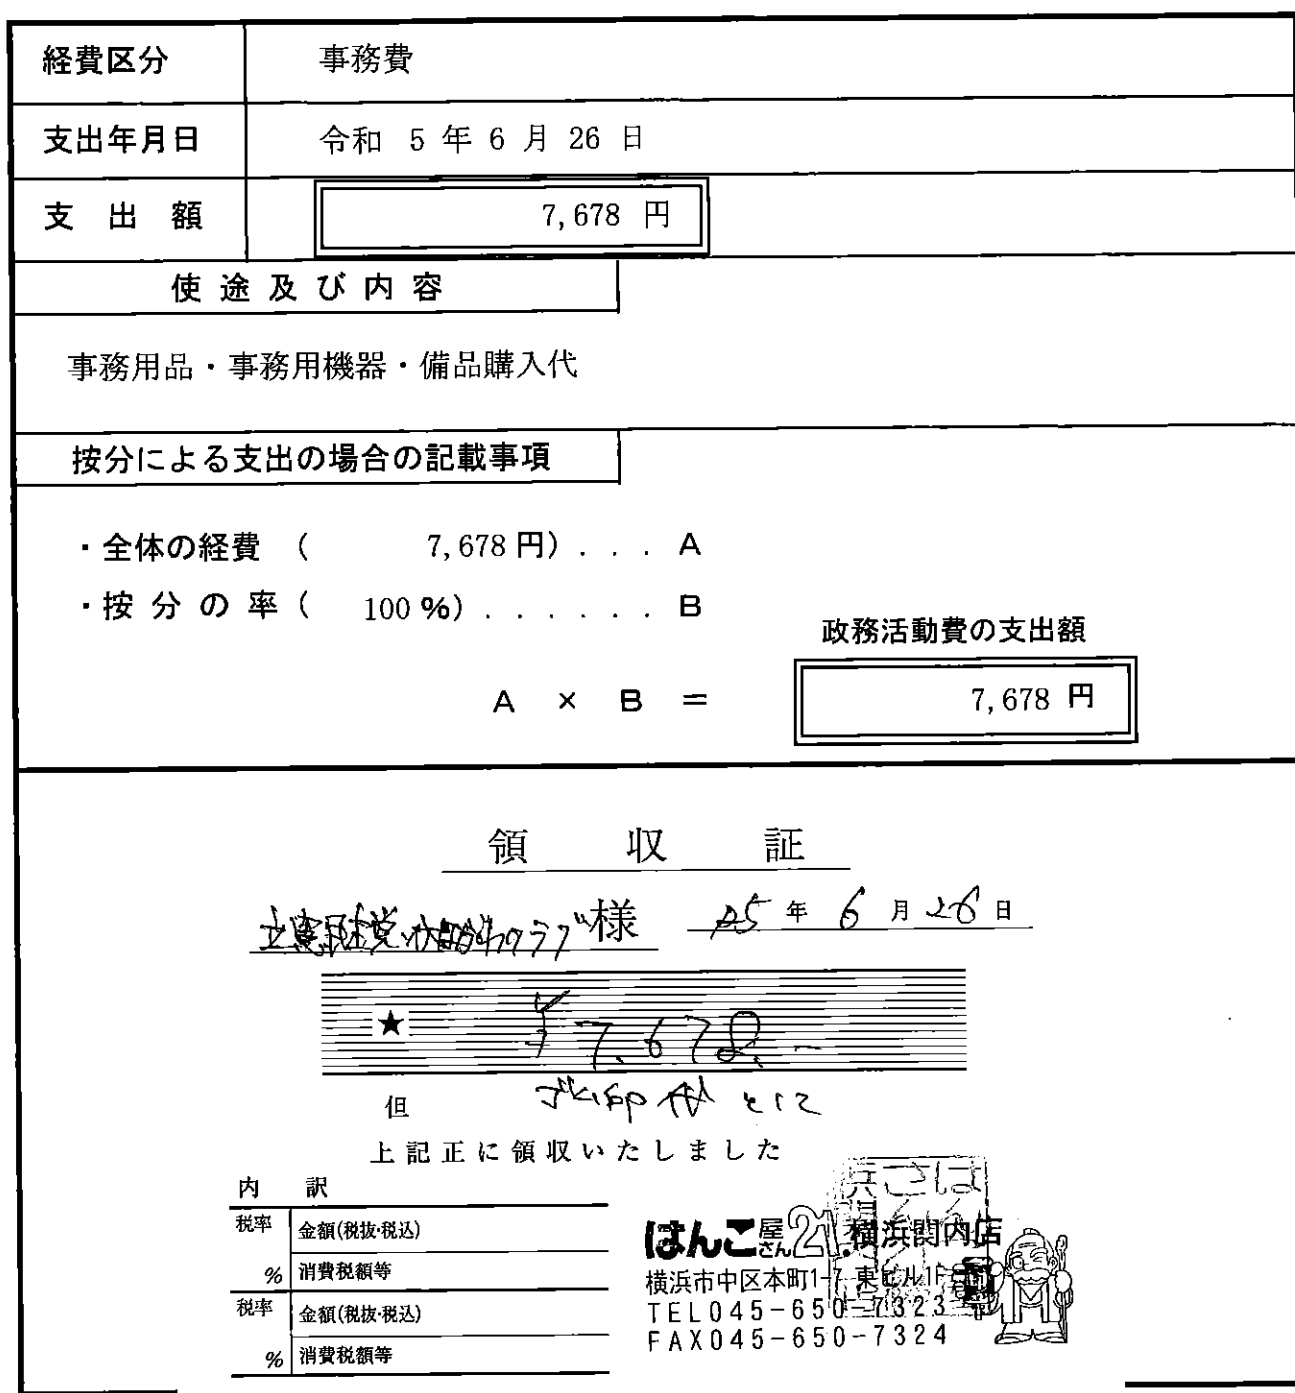 経費区分 事務費
支出年月日 令和 5 年 6 月 26 日
支出額 7,678 円
使途及び内容
事務用品・事務用機器・備品購入代
按分による支出の場合の記載事項
・全体の経費 ( 7,678 円) . . . A
・按分の率 ( 100 %) . . . . . . B
政務活動費の支出額
A × B = 7,678 円
領収証
立憲民主党・かながわクラブ 様 R5 年 6 月 26 日
★ ¥7,678.-
但 ゴム印代として
上記正に領収いたしました
内訳
税率 金額(税抜・税込)
% 消費税額等
税率 金額(税抜・税込)
% 消費税額等
はんこ屋さん21.横浜関内店
横浜市中区本町1-7 東ビル1F
TEL045-650-7323
FAX045-650-7324